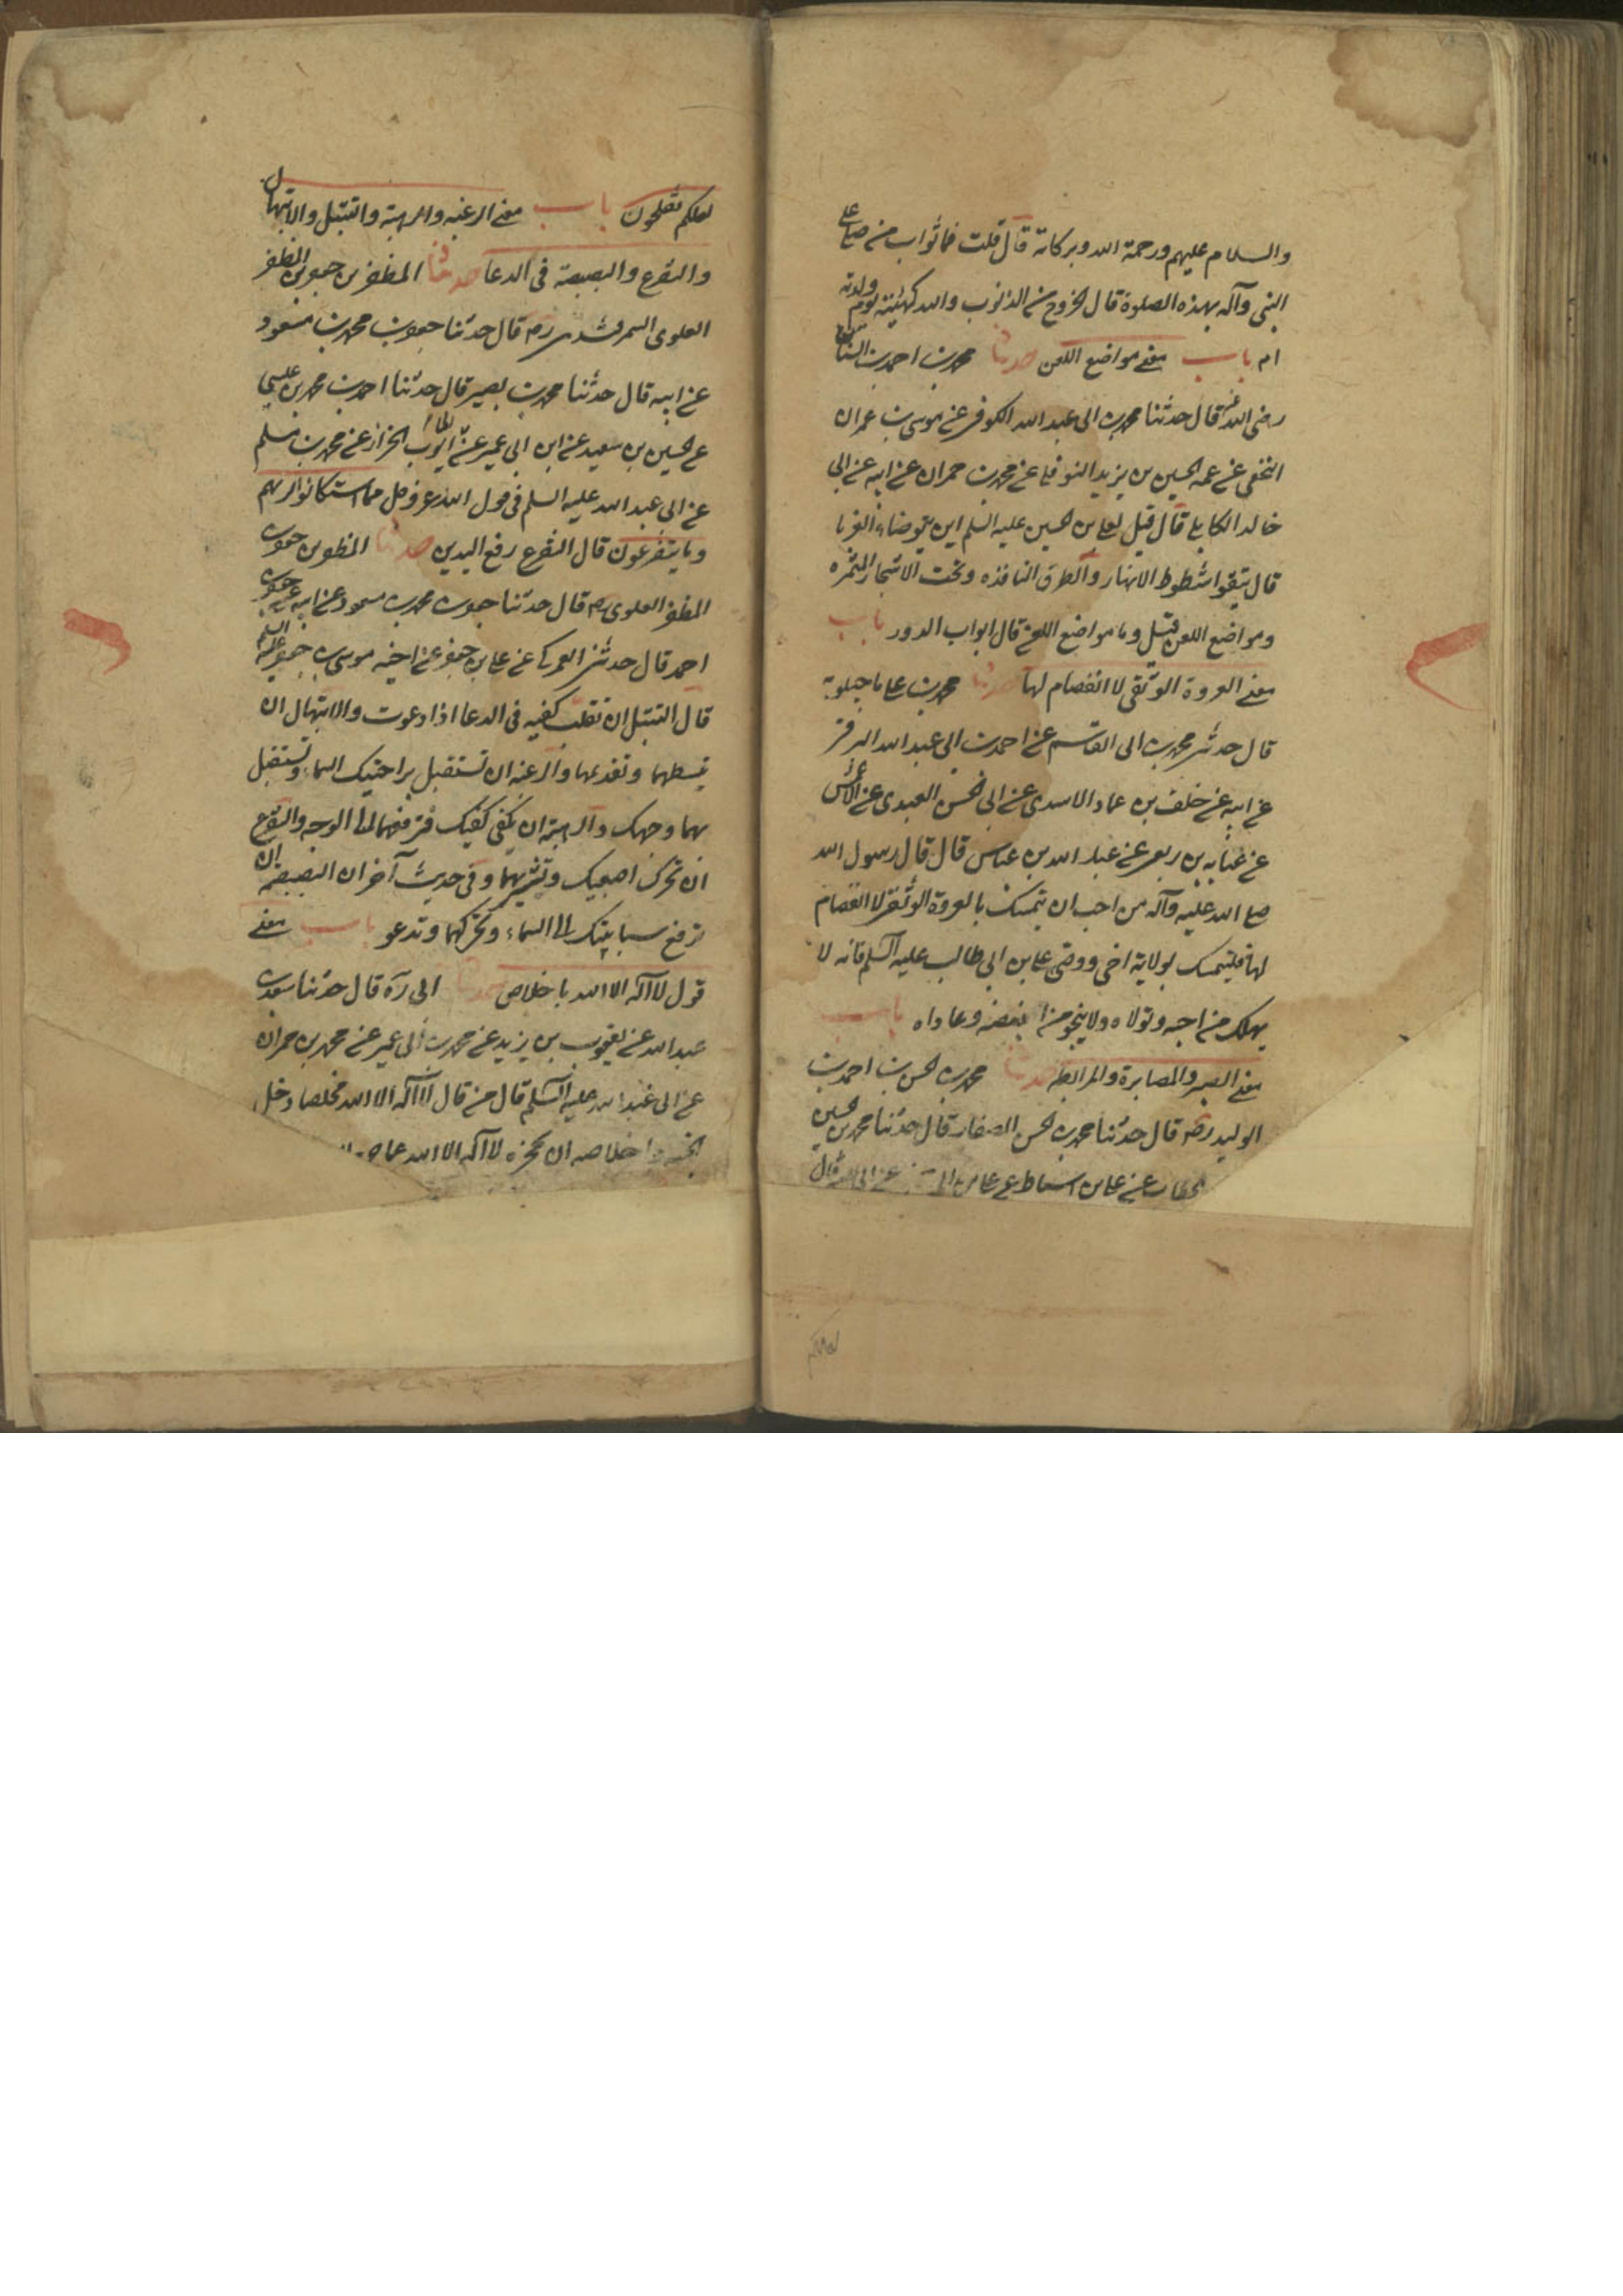 والسلام عليهم ورحمة الله وبركاته قال قلت فما ثواب من صلى على
النبي وآله بهذه الصلوة قال الخروج من الذنوب والله كهيئة يوم ولدته
امه باب معنى مواضع اللعن حدثنا محمد بن احمد السناني
رضي الله عنه قال حدثنا محمد بن ابي عبد الله الكوفي عن موسى بن عمران
النخعي عن عمه الحسين بن يزيد النوفلي عن محمد بن حمران عن ابيه عن ابي
خالد الكابلي قال قيل لعلي بن الحسين عليه السلم اين يتوضاء الغربا
قال يتقوا شطوط الانهار والطرق النافذه وتحت الاشجار المثمره
ومواضع اللعن قيل وما مواضع اللعن قال ابواب الدور باب
معنى العروة الوثقى لا انفصام لها حدثنا محمد بن علي ماجيلويه
قال حدثني محمد بن ابي القاسم عن احمد بن ابي عبد الله البرقي
عن ابيه عن خلف بن حماد الاسدي عن ابي الحسن العبدي عن الاعمش
عن عبايه بن ربعي عن عبد الله بن عباس قال قال رسول الله
صلى الله عليه وآله من احب ان يتمسك بالعروة الوثقى لا انفصام
لها فليتمسك بولاية اخي ووصي علي بن ابي طالب عليه السلم فانه لا
يهلك من احبه وتولاه ولا ينجو من ابغضه وعاداه باب
معنى الصبر والمصابرة والمرابطه حدثنا محمد بن الحسن بن احمد بن
الوليد رضه قال حدثنا محمد بن الحسن الصفار قال حدثنا محمد بن الحسين
الخطاب عن علي بن اسباط عن علي بن ابي عن ابي قال
لعلكم
لعلكم تفلحون باب معنى الرغبه والرهبة والتبتل والابتهال
والتضرع والبصبصة في الدعا حدثنا المظفر بن جعفر بن المظفر
العلوي السمرقندي ره قال حدثنا جعفر بن محمد بن مسعود
عن ابيه قال حدثنا محمد بن نصير قال حدثنا احمد بن محمد بن عيسى
عن الحسين بن سعيد عن ابن ابي عمير عن ابي ايوب الخراز عن محمد بن مسلم
عن ابي عبد الله عليه السلم في قول الله عز وجل فما استكانوا لربهم
وما يتضرعون قال التضرع رفع اليدين حدثنا المظفر بن جعفر بن
المظفر العلوي ره قال حدثنا جعفر بن محمد بن مسعود عن ابيه عن جعفر بن
احمد قال حدثني العمركي عن علي بن جعفر عن اخيه موسى بن جعفر عليه السلم
قال التبتل ان تقلب كفيك في الدعا اذا دعوت والابتهال ان
تبسطهما وتقدمهما والرغبه ان تستقبل براحتيك السماء وتستقبل
بهما وجهك والرهبة ان تكفي كفيك فترفعهما الى الوجه والتضرع
ان تحرك اصبعيك وتشير بهما وفي حديث آخر ان البصبصة ان
ترفع سبابتيك الى السماء وتحركهما وتدعو باب معنى
قول لا آله الا الله باخلاص حدثنا ابي ره قال حدثنا سعد بن
عبد الله عن يعقوب بن يزيد عن محمد بن ابي عمير عن محمد بن حمران
عن ابي عبد الله عليه السلم قال من قال لا آله الا الله مخلصا دخل
الجنه واخلاصه ان تحجزه لا آله الا الله عما